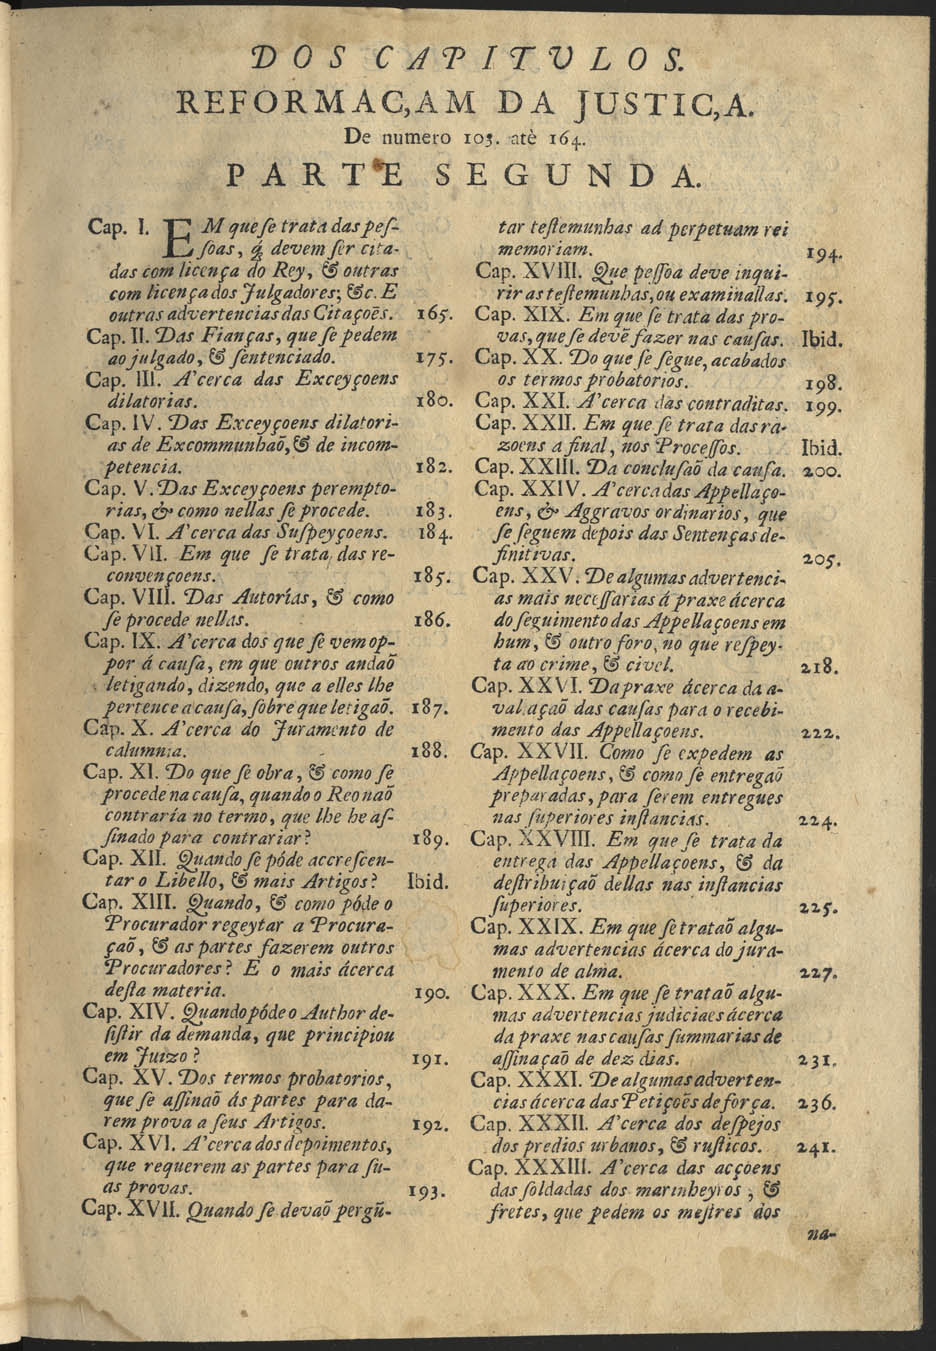 DOS CAPITULOS.
REFORMAC,AM DA JUSTIC,A.
De numero 103. atè 164.
PARTE SEGUNDA.
Cap. I. EM que ſe trata das peſ-
ſoas, q̃ devem ſer cita-
das com licença do Rey, & outras
com licença dos Julgadores; &c. E
outras advertencias das Citaçoẽs. 165.
Cap. II. Das Fianças, que ſe pedem
ao julgado, & ſentenciado. 175.
Cap. III. A'cerca das Exceyçoens
dilatorias. 180.
Cap. IV. Das Exceyçoens dilatori-
as de Excommunhaõ, & de incom-
petencia. 182.
Cap. V. Das Exceyçoens perempto-
rias, & como nellas ſe procede. 183.
Cap. VI. A'cerca das Suſpeyçoens. 184.
Cap. VII. Em que ſe trata das re-
convençoens. 185.
Cap. VIII. Das Autorías, & como
ſe procede nellas. 186.
Cap. IX. A'cerca dos que ſe vem op-
por á cauſa, em que outros andaõ
letigando, dizendo, que a elles lhe
pertence a cauſa, ſobre que letigaõ. 187.
Cap. X. A'cerca do Juramento de
calumnia. 188.
Cap. XI. Do que ſe obra, & como ſe
procede na cauſa, quando o Reo naõ
contraría no termo, que lhe he aſ-
ſinado para contrariar? 189.
Cap. XII. Quando ſe póde accreſcen-
tar o Libello, & mais Artigos? Ibid.
Cap. XIII. Quando, & como póde o
Procurador regeytar a Procura-
çaõ, & as partes fazerem outros
Procuradores? E o mais ácerca
deſta materia. 190.
Cap. XIV. Quando póde o Author de-
ſiſtir da demanda, que principiou
em Juizo? 191.
Cap. XV. Dos termos probatorios,
que ſe aſſinaõ ás partes para da-
rem prova a ſeus Artigos. 192.
Cap. XVI. A'cerca dos depoimentos,
que requerem as partes para ſu-
as provas. 193.
Cap. XVII. Quando ſe devaõ pergũ-
tar teſtemunhas ad perpetuam rei
memoriam. 194.
Cap. XVIII. Que peſſoa deve inqui-
rir as teſtemunhas, ou examinallas. 195.
Cap. XIX. Em que ſe trata das pro-
vas, que ſe devẽ fazer nas cauſas. Ibid.
Cap. XX. Do que ſe ſegue, acabados
os termos probatorios. 198.
Cap. XXI. A'cerca das contraditas. 199.
Cap. XXII. Em que ſe trata das ra-
zoens a final, nos Proceſſos. Ibid.
Cap. XXIII. Da concluſaõ da cauſa. 200.
Cap. XXIV. A'cerca das Appellaço-
ens, & Aggravos ordinarios, que
ſe ſeguem depois das Sentenças de-
finitivas. 205.
Cap. XXV. De algumas advertenci-
as mais neceſſarias á praxe ácerca
do ſeguimento das Appellaçoens em
hum, & outro foro, no que reſpey-
ta ao crime, & civel. 218.
Cap. XXVI. Da praxe ácerca da a-
valiaçaõ das cauſas para o recebi-
mento das Appellaçoens. 222.
Cap. XXVII. Como ſe expedem as
Appellaçoens, & como ſe entregaõ
preparadas, para ſerem entregues
nas ſuperiores inſtancias. 224.
Cap. XXVIII. Em que ſe trata da
entrega das Appellaçoens, & da
deſtribuiçaõ dellas nas inſtancias
ſuperiores. 225.
Cap. XXIX. Em que ſe trataõ algu-
mas advertencias ácerca do jura-
mento de alma. 227.
Cap. XXX. Em que ſe trataõ algu-
mas advertencias judiciaes ácerca
da praxe nas cauſas ſummarias de
aſſinaçaõ de dez dias. 231.
Cap. XXXI. De algumas adverten-
cias ácerca das Petiçoẽs de força. 236.
Cap. XXXII. A'cerca dos deſpejos
dos predios urbanos, & ruſticos. 241.
Cap. XXXIII. A'cerca das acçoens
das ſoldadas dos marinheyros, &
fretes, que pedem os meſtres dos
na-